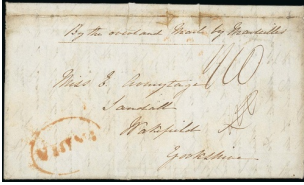 By the overland Mail by Marseilles
Miss J. Armytage
Sandall
Wakefield
Yorkshire
INDIA